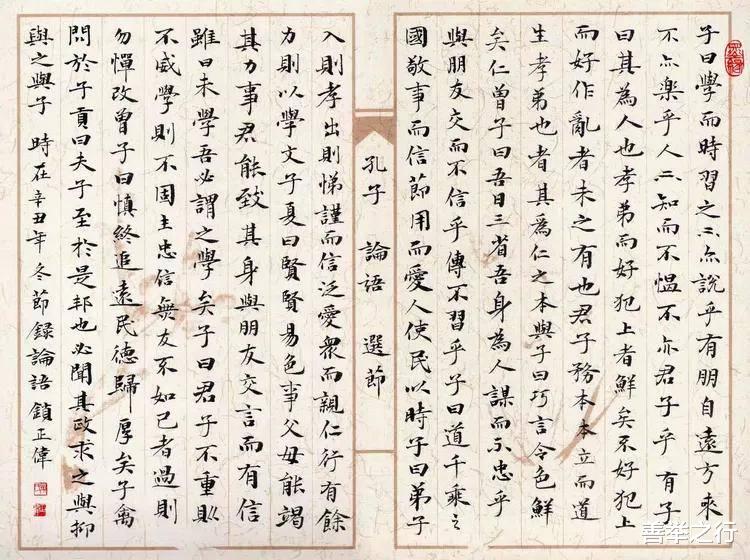 子曰學而時習之不亦說乎有朋自遠方來
不亦樂乎人不知而不慍不亦君子乎 有子
曰其為人也孝弟而好犯上者鮮矣不好犯上
而好作亂者未之有也君子務本本立而道
生孝弟也者其爲仁之本與子曰巧言令色鮮
矣仁曾子曰吾日三省吾身為人謀而不忠乎
與朋友交而不信乎傳不習乎子曰道千乘之
國敬事而信節用而愛人使民以時子曰弟子
孔子 論語 選節
入則孝出則悌謹而信泛愛衆而親仁行有餘
力則以學文子夏曰賢賢易色事父母能竭
其力事君能致其身與朋友交言而有信
雖曰未學吾必謂之學矣子曰君子不重則
不威學則不固主忠信無友不如己者過則
勿憚改曾子曰慎終追遠民德歸厚矣子禽
問於子貢曰夫子至於是邦也必聞其政求之與抑
與之與子 時在辛丑年冬節録論語鎖正偉
善举之行